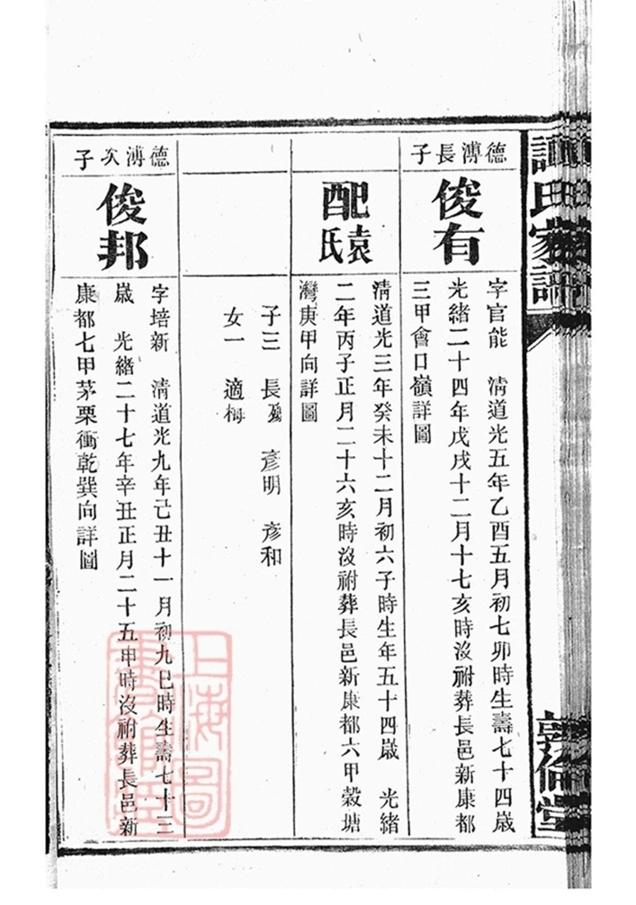 譚氏家譜
敦倫堂
德溥長子
俊有
字官能 清道光五年乙酉五月初七卯時生壽七十四歲
光緒二十四年戊戌十二月十七亥時沒祔葬長邑新康都
三甲會口嶺詳圖
配袁氏
清道光三年癸未十二月初六子時生年五十四歲 光緒
二年丙子正月二十六亥時沒祔葬長邑新康都六甲穀塘
灣庚甲向詳圖
子三 長 彥明 彥和
女一 適梅
德溥次子
俊邦
字培新 清道光九年己丑十一月初九巳時生壽七十三
歲 光緒二十七年辛丑正月二十五申時沒祔葬長邑新
康都七甲茅栗衝乾巽向詳圖
上海圖書館藏